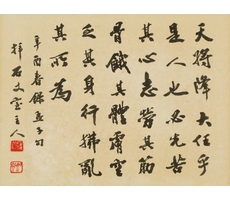 天將降大任乎
是人也必先苦
其心志勞其筋
骨餓其體膚空
乏其身行拂亂
其所為
辛酉春錄孟子句
拜石文室主人